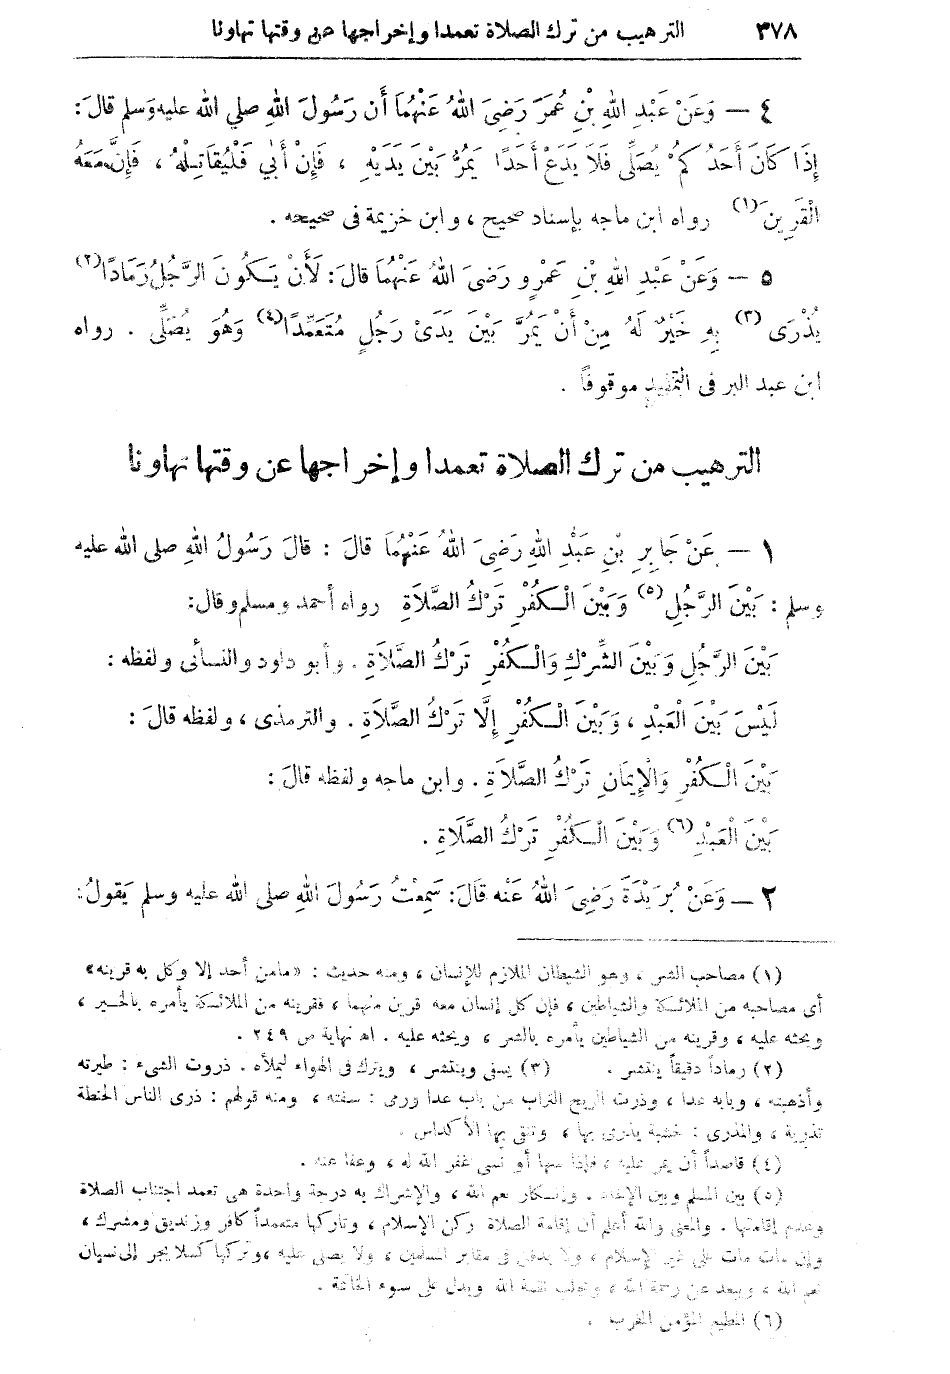 ٣٧٨ الترهيب من ترك الصلاة تعمدا وإخراجها عن وقتها تهاونا
٤ — وَعَنْ عَبْدِ اللهِ بْنِ عُمَرَ رَضِيَ اللهُ عَنْهُمَا أَن رَسُولَ اللهِ صلي الله عليه وَسلم قالَ:
إِذَا كَانَ أَحَدُكمُ يُصَلِّى فَلاَ يَدَعْ أَحَدًا يَمُرُّ بَيْنَ يَدَيْهِ ، فَإِنْ أَبٰي فَلْيُقاتِلْهُ ، فَإِنَّ مَعَهُ
الْقَرِينَ (١) رواه ابن ماجه بإسناد صحيح ، وابن خزيمة فى صحيحه .
٥ — وَعَنْ عَبْدِ اللهِ بْنِ عَمْرٍو رَضىَ اللهُ عَنْهُمَا قالَ: لَأَنْ يَكُونَ الرَّجُلُ رَمَادًا (٢)
يُذْرَى (٣) بِهِ خَيْرٌ لَهُ مِنْ أَنْ يَمُرَّ بَيْنَ يَدَىْ رَجُلٍ مُتَعَمِّدًا (٤) وَهُوَ يُصَلِّى . رواه
ابن عبد البر فى التمهيد موقوفاً .
الترهيب من ترك الصلاة تعمدا وإخراجها عن وقتها تهاونا
١ — عَنْ جَابِرِ بْنِ عَبْدِ اللهِ رَضِيَ اللهُ عَنْهُمَا قالَ : قالَ رَسُولُ اللهِ صلى الله عليه
وسلم : بَيْنَ الرَّجُلِ (٥) وَبَيْنَ الْكُفْرِ تَرْكُ الصَّلاَةِ رواه أحمد ومسلم وقال:
بَيْنَ الرَّجُلِ وَبَيْنَ الشِّرْكِ وَالْكُفْرِ تَرْكُ الصَّلاَةِ . وأبو داود والنسأى ولفظه :
لَيْسَ بَيْنَ الْعَبْدِ ، وَبَيْنَ الْكُفْرِ إِلَّا تَرْكُ الصَّلاَةِ . والترمذى ، ولفظه قالَ :
بَيْنَ الْكُفْرِ وَالْإِيمَانِ تَرْكُ الصَّلاَةِ . وابن ماجه ولفظه قالَ :
بَيْنَ الْعَبْدِ (٦) وَبَيْنَ الْكُفْرِ تَرْكُ الصَّلاَةِ .
٢ — وَعَنْ بُرَيْدَةَ رَضِيَ اللهُ عَنْه قَالَ: سَمِعْتُ رَسُولَ اللهِ صلى الله عليه وسلم يَقولُ:
(١) مصاحب الشر ، وهو الشيطان الملازم للإنسان ، ومنه حديث : «مامن أحد إلا وكل به قرينه»
أى مصاحبه من الملائكة والشياطين ، فإن كل إنسان معه قرين منهما ، فقرينه من الملائكة يأمره بالخير ،
ويحثه عليه ، وقرينه من الشياطين يأمره بالشر ، ويحثه عليه . اه نهاية ص ٢٤٩ .
(٢) رماداً دقيقاً ينتشر . (٣) يسفى وينتشر ، ويترك فى الهواء ليملأه . ذروت الشىء : طيرته
وأذهبته ، وبابه عدا ، وذرت الريح التراب من باب عدا ورمى : سفته ، ومنه قولهم : ذرى الناس الحنطة
تذرية ، والمذرى : خشبة يذرى بها ، وتنقى بها الأكداس .
(٤) قاصداً أن يمر عليه ، فإذا سها أو نسى غفر الله له ، وعفا عنه .
(٥) بين المسلم وبين . وإنكار نعم الله ، والإشراك به درجة واحدة هى تعمد اجتناب الصلاة
وعدم إقامتها . والمعنى والله أعلم أن إقامة الصلاة ركن الإسلام ، وتاركها متعمداً كافر وزنديق ومشرك ،
وإن مات مات على غير الإسلام ، ولا يدفن فى مقابر المسلمين ، ولا يصلى عليه ، وتركها كسلا يجر إلى نسيان
نعم الله ، ويبعد عن رحمة الله ، ويجلب نقمة الله ويدل على سوء الخاتمة .
(٦) المطيع المؤمن المقرب .